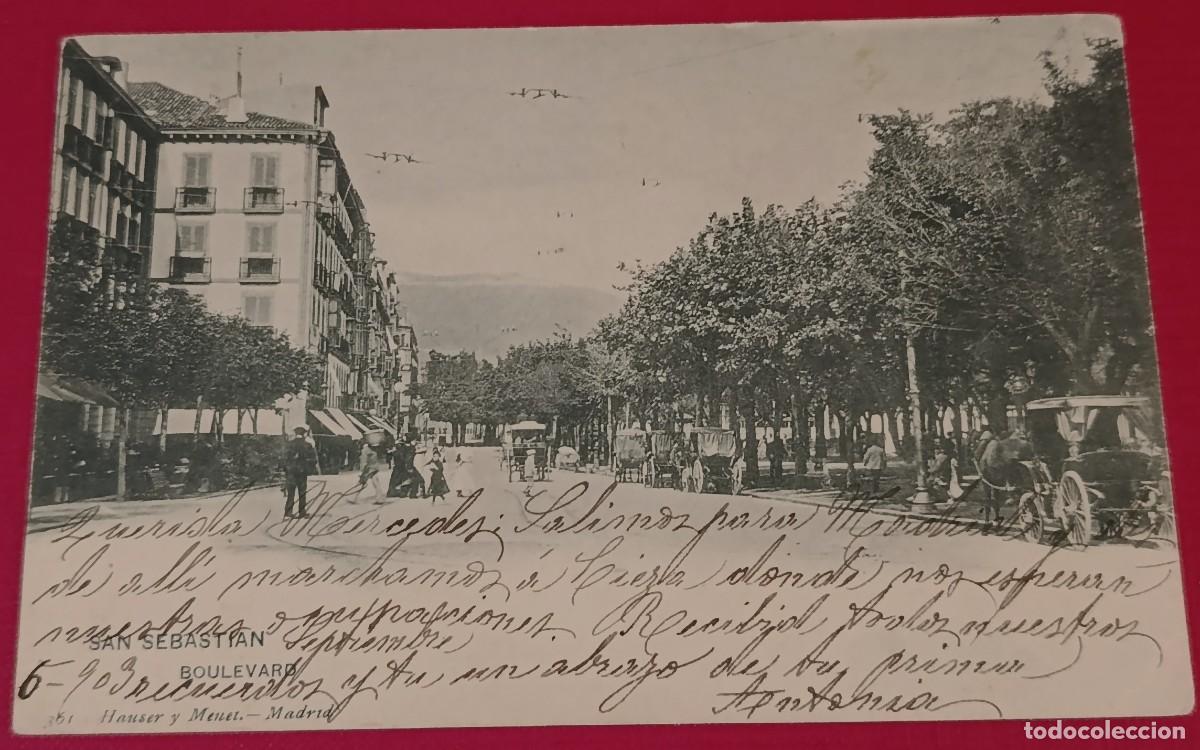 Querida Mercedes; Salimos para Madrid
de allí marchamos á Cieza donde nos esperan
nuestras ocupaciones. Recibid todos nuestros
SAN SEBASTIAN Septiembre
BOULEVARD
6-903 recuerdos y tu un abrazo de tu prima
Antonia
361 Hauser y Menet.-Madrid
todocoleccion